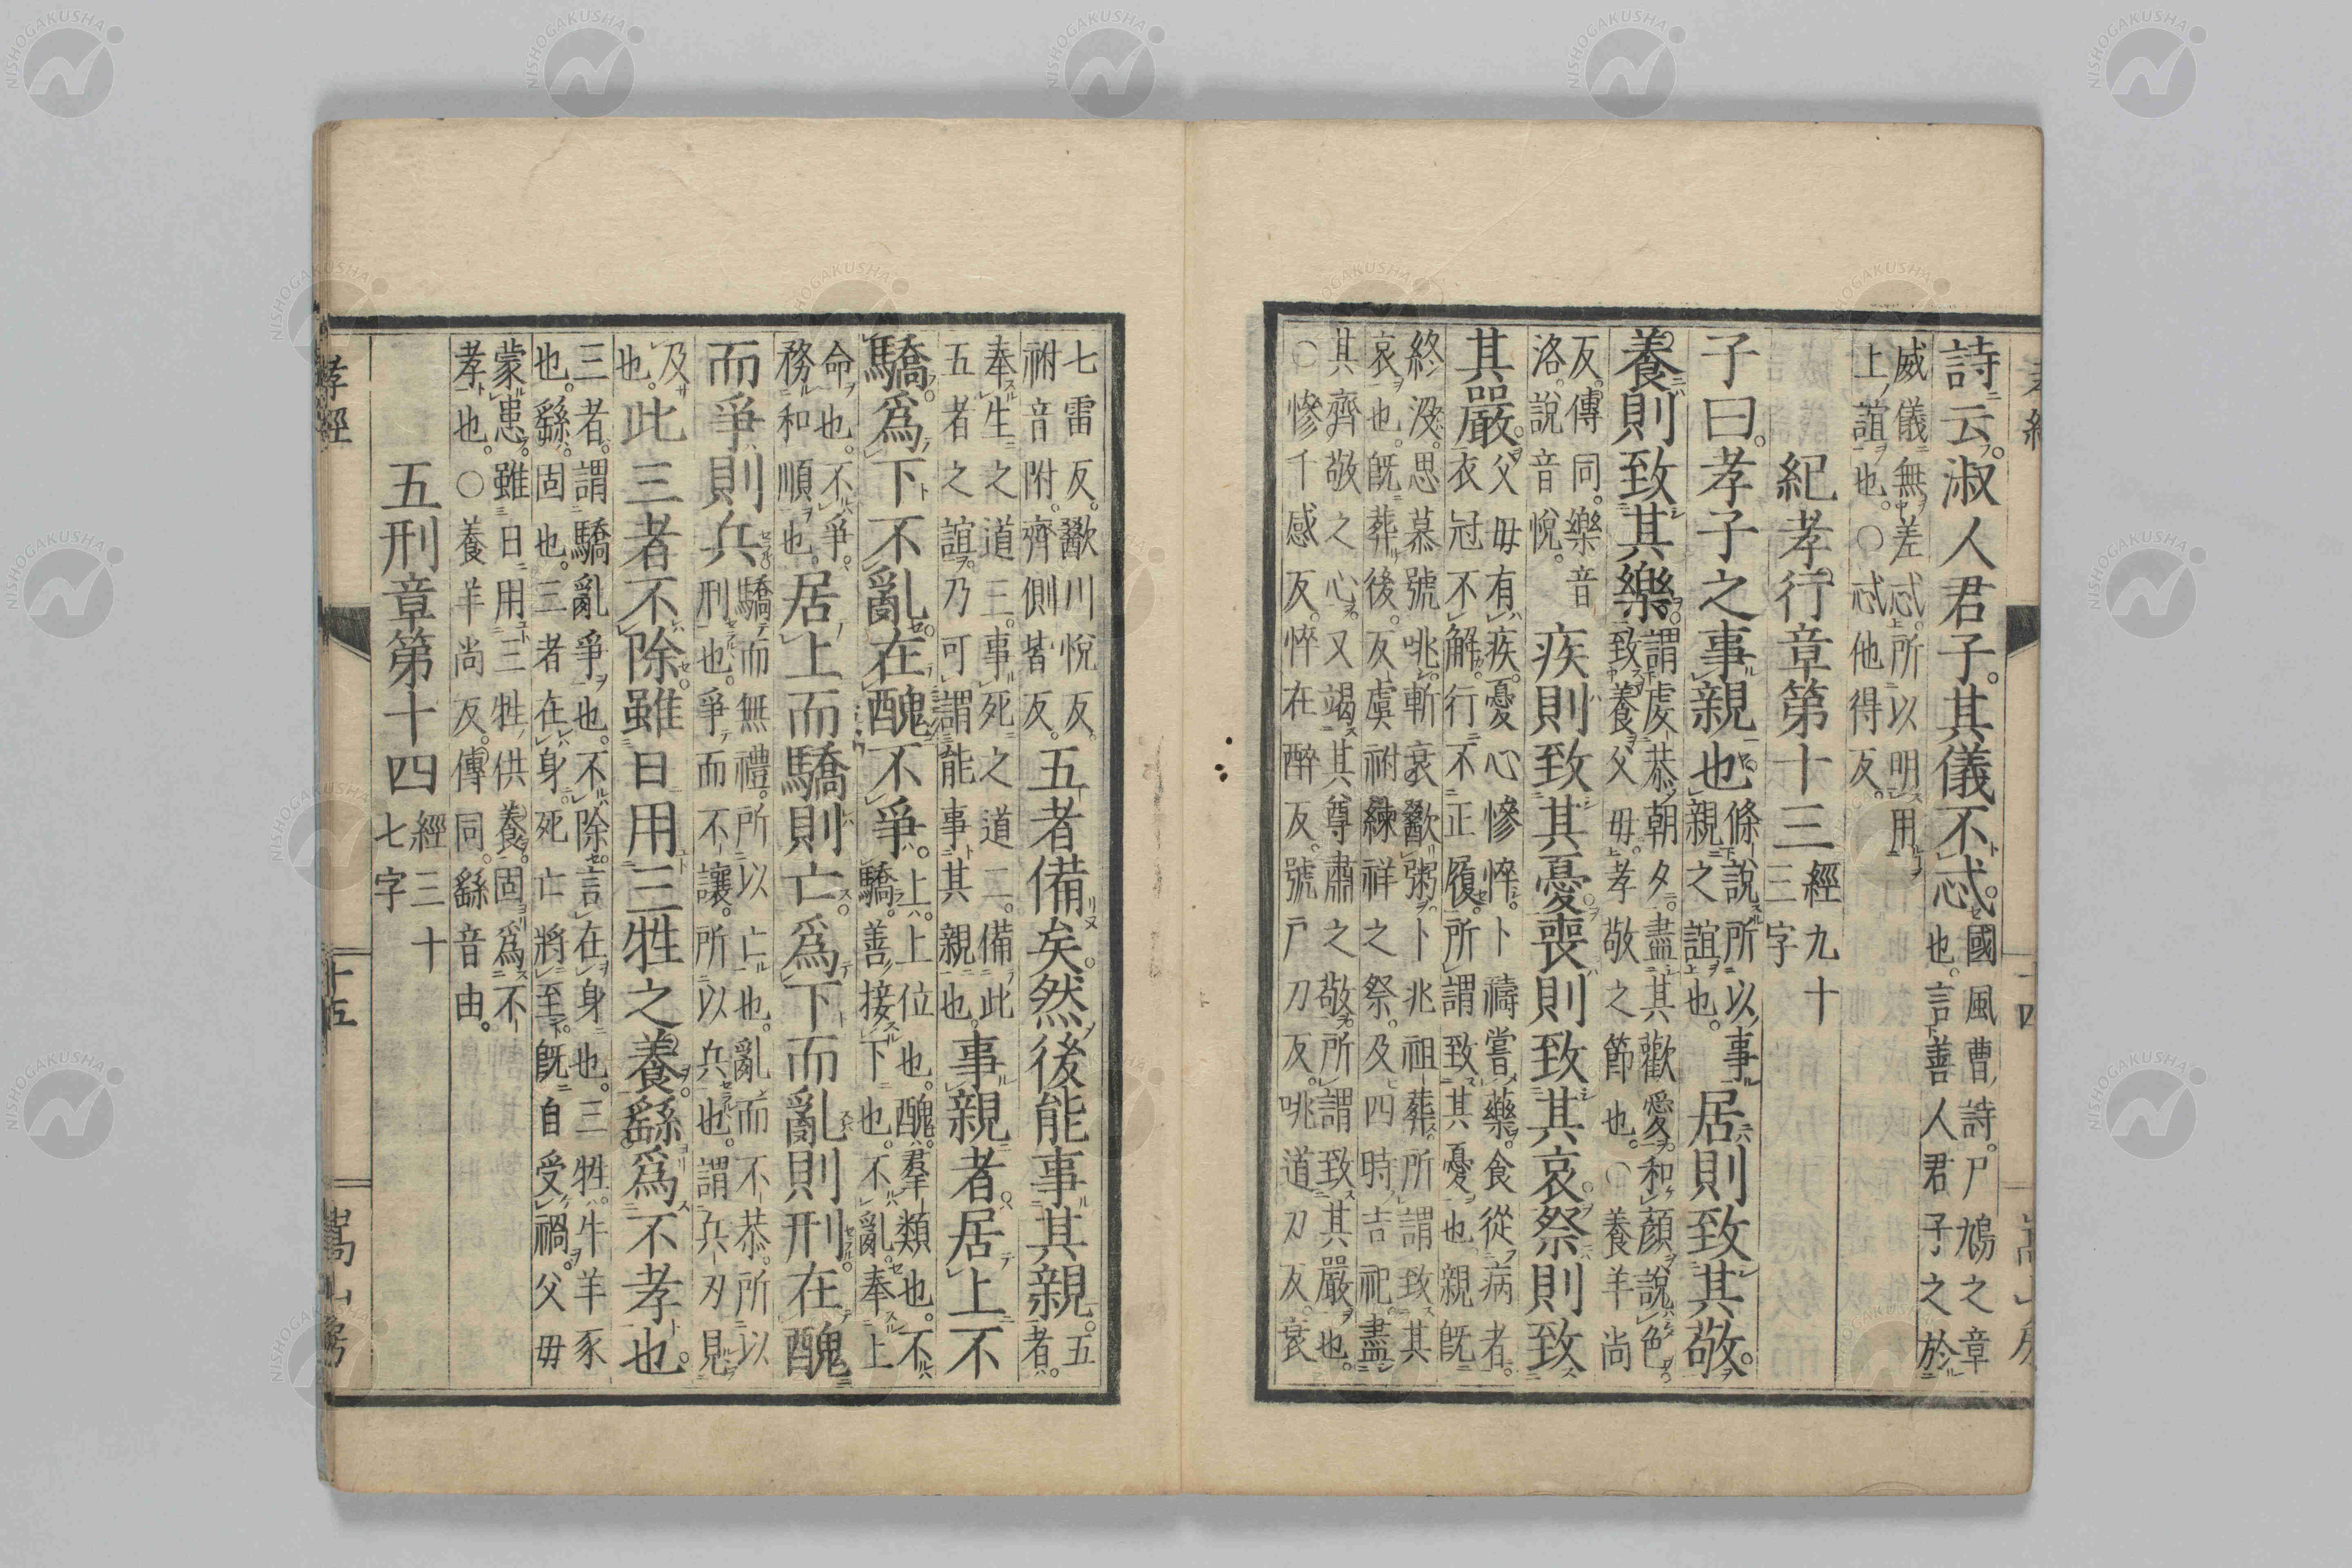 詩云。淑人君子。其儀不忒。
國風曹詩。尸鳩之章
也。言善人君子之於
威儀無差忒。所以明用
上誼也。○忒他得反。
紀孝行章第十三
經九十
三字
子曰。孝子之事親也。
條說所以事
親之誼也。
居則致其敬。
養則致其樂。
謂虔恭朝夕。盡其歡愛。和顏說色。
致養父毋。孝敬之節也。○養羊尚
反。傳同。樂音
洛。說音悅。
疾則致其憂。喪則致其哀。祭則致
其嚴。
父毋有疾。憂心慘悴。卜禱嘗藥。食從病者。
衣冠不解。行不正履。所謂致其憂也親旣
終沒。思慕號咷。斬衰歠粥。卜兆祖葬。所謂致其
哀也。旣葬後。反虞祔練祥之祭。及四時吉祀。盡
其齊敬之心。又竭其尊肅之敬。所謂致其嚴也。
○慘千感反。悴在醉反。號戸刀反。咷道刀反。衰
七雷反。歠川悅反。
祔音附。齊側皆反。
五者備矣。然後能事其親。
五
者。
奉生之道三。事死之道二。備此
五者之誼。乃可謂能事其親也。
事親者。居上不
驕。爲下不亂。在醜不爭。
上。上位也。醜。羣類也。不
驕。善接下也。不亂。奉上
命也。不爭。
務和順也。
居上而驕則亡。爲下而亂則刑。在醜
而爭則兵。
驕而無禮。所以亡也。亂而不恭。所以
刑也。爭而不讓。所以兵也。謂兵刃見
及
也。
此三者不除。雖日用三牲之養。繇爲不孝也。
三者。謂驕亂爭也。不除。言在身也。三牲。牛羊豕
也。繇。固也。三者在身。死亡將至。旣自受禍。父毋
蒙患。雖日用三牲供養。固爲不
孝也。○養羊尚反。傳同。繇音由。
五刑章第十四
經三十
七字
孝經
十五
嵩山房